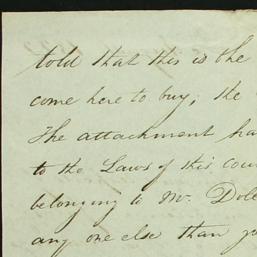 told that this is the
come here to buy, the
The attachment ha
to the Laws of this cou
belonging to Mr. Dole
any one else than yo